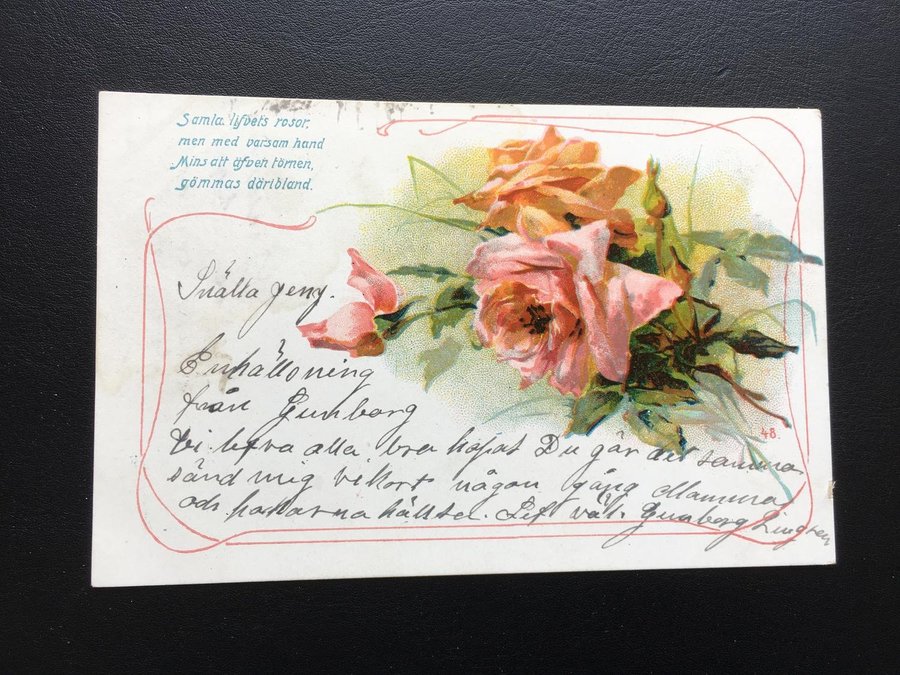 Samla lifvets rosor,
men med varsam hand
Mins att äfven törnen,
gömmas däribland.
Snälla Jeny.
En hällsning
från Gunborg
Vi lefva alla bra hopas Du gör det samma
sänd mig vikort någon gång Mamma
och hälsa. Lef väl. Gunborg
48.